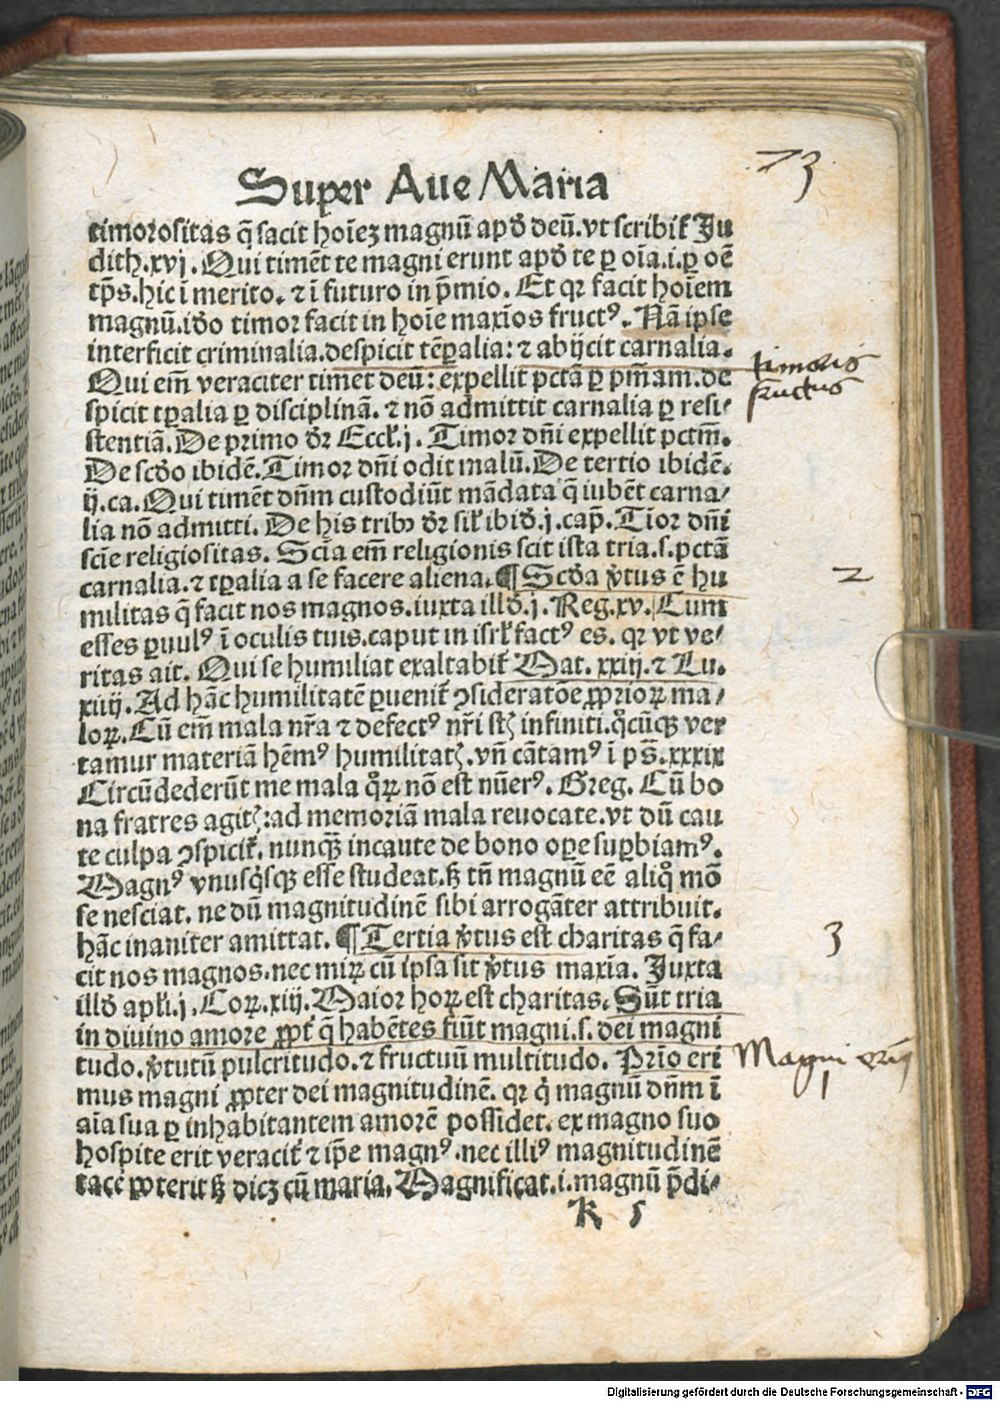 73
Super Aue Maria
timorositas q̄ facit hoīeꝫ magnū apđ deū. vt scribiť Ju
dith. xvj. Qui timēt te magni erunt apđ te ꝑ oīa. i. ꝑ oē
tp̄s. hic ī merito. ⁊ ī futuro in p̄mio. Et qꝛ facit hoīem
magnū. iđo timoꝛ facit in hoīe maxīos fructꝰ. Nā ipse
interficit criminalia. despicit tēꝑalia: ⁊ abijcit carnalia.
timoris
fructus
Qui eīm veraciter timet deū: expellit pctā ꝑ pn̄iam. de
spicit tꝑalia ꝑ disciplinā. ⁊ nō admittit carnalia ꝑ resi⸗
stentiā. De primo đꝛ Eccl̓. j. Timoꝛ dn̄i expellit pctm̄.
De scđo ibidē. Timoꝛ dn̄i odit malū. De tertio ibidē.
ij. ca. Qui timēt dn̄m custodiūt mādata q̄ iubēt carna⸗
lia nō admitti. De his tribꝫ đꝛ sil̓ ibiđ. j. cap̄. Tīoꝛ dn̄i
sciē religiositas. Scīa eīm religionis scit ista tria. s. pctā
carnalia. ⁊ tꝑalia a se facere aliena. ¶ Scđa v̓tus ē hu
2
militas q̄ facit nos magnos. iuxta illđ. j. Reg. xv. Cum
esses ꝑuulꝰ ī oculis tuis. caput in isrl̓ factꝰ es. qꝛ vt ve⸗
ritas ait. Qui se humiliat exaltabiť Mat. xxiij. ⁊ Lu.
xiiij. Ad hāc humilitatē ꝑueniť ꝯsideratōe ꝓprioꝝ ma⸗
loꝝ. Cū eīm mala nr̄a ⁊ defectꝰ nr̄i sīt infiniti. qͦcūqꝫ ver
tamur materiā hēmꝰ humilitatꝭ. vn̄ cātamꝰ ī ps̄. xxxix
Circūdederūt me mala qͦꝝ nō est nūerꝰ. Greg. Cū bo
na fratres agitꝭ: ad memoriā mala reuocate. vt dū cau
te culpa ꝯspiciť. nunqꝫ incaute de bono oꝑe suꝑbiamꝰ.
Magnꝰ vnusqͥsqꝫ esse studeat. sꝫ tn̄ magnū eē aliqͦ mō
se nesciat. ne dū magnitudinē sibi arrogāter attribuit.
hāc inaniter amittat. ¶ Tertia v̓tus est charitas q̄ fa⸗
3
cit nos magnos. nec miꝝ cū ipsa sit v̓tus maxīa. Juxta
illđ apl̓i. j. Coꝝ. xiij. Maior hoꝝ est charitas. Sūt tria
in diuino amore ꝓpť q̄ habētes fiūt magni. s. dei magni
tudo. v̓tutū pulcritudo. ⁊ fructuū multitudo. Prīo eri
Magni
1
mus magni ꝓpter dei magnitudinē. qꝛ qͥ magnū dn̄m ī
aīa sua ꝑ inhabitantem amorē possidet. ex magno suo
hospite erit veraciť ⁊ ip̄e magnꝰ. nec illiꝰ magnitudinē
tacē poterit sꝫ dicꝫ cū maria. Magnificat. i. magnū p̄di⸗
K 5
Digitalisierung gefördert durch die Deutsche Forschungsgemeinschaft - DFG